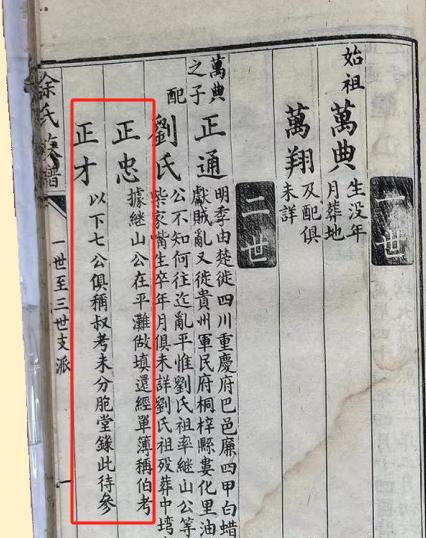 一世
始祖
萬典
生没年
月葬地
萬翔
及配俱
未詳
二世
萬典
之子
正通
明季由楚徙四川重慶府巴邑廉四甲白蜡
獻賊亂又徙貴州軍民府桐梓縣婁化里油
配
劉氏
公不知何往迄亂平惟劉氏祖率継山公等
柴家嘴生卒年月俱未詳劉氏祖殁葬中塆
正忠
據継山公在平灘做填還經單簿稱伯考
正才
以下七公俱稱叔考未分胞堂錄此待參
余氏族譜
一世至三世支派
一